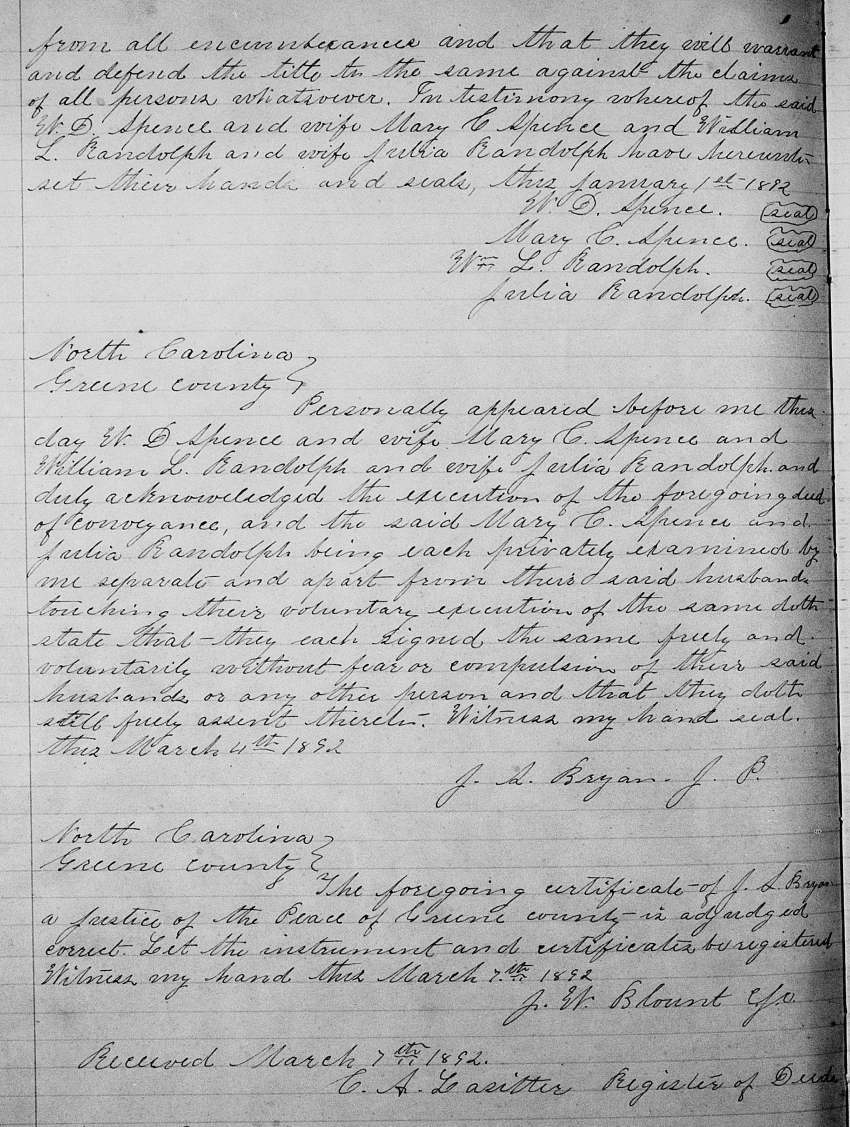 from all encumberances and that they will warrant
and defend the title to the same against the claims
of all persons whatsoever. In testimony whereof the said
W. D. Spence and wife Mary C Spence and William
L. Randolph and wife Julia Randolph have hereunto
set their hands and seals, this January 1st 1892
W. D. Spence. (seal)
Mary C. Spence. (seal)
Wm L. Randolph. (seal)
Julia Randolph. (seal)
North Carolina }
Greene county }
Personally appeared before me this
day W. D Spence and wife Mary C. Spence and
William L. Randolph and wife Julia Randolph and
duly acknoweledged the execution of the foregoing deed
of conveyance, and the said Mary C. Spence and
Julia Randolph being each privately examined by
me separate and apart from their said husbands
touching their voluntary execution of the same doth
state that they each signed the same freely and
voluntarily without fear or compulsion of their said
husbands or any other person and that they doth
still freely assent thereto. Witness my hand seal.
this March 4th 1892
J. S. Bryan. J. P.
North Carolina }
Greene county }
The foregoing certificate of J. S. Bryan
a Justice of the Peace of Greene county is adjudged
correct. Let the instrument and certificates be registered
Witness my hand this March 7th 1892
J. W. Blount
Received March 7th 1892.
C. A. Lasitter Register of Deeds